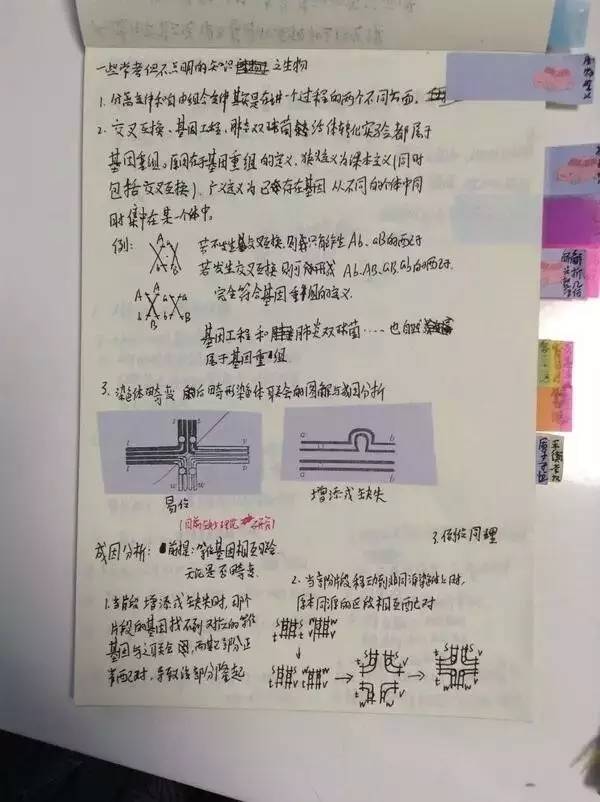 一些常考但不点明的知识 之生物
1. 分离定律和自由组合定律其实是在讲一个过程的两个不同方面.
2. 交叉互换、基因工程、肺炎双球菌 转化实验都属于
基因重组。原因在于基因重组的定义，狭义为课本定义(同时
包括交叉互换)、广义为已存在基因从不同的个体中同
时集中在某一个体中。
例: 若不发生交叉互换,则只能产生Ab、aB的配子
若发生交叉互换则可形成 Ab、AB、aB、ab的配子.
完全符合基因重组的定义.
A a
b B
A A a a
b B b B
基因工程和肺炎双球菌……也
属于基因重组
3. 染色体畸变 后畸形染色体联会的图解与成因分析
a b
a b
易位
增添或缺失
3. 倒位同理
成因分析: 前提:等位基因相互吸引
无论是否畸变.
1. 当片段增添或缺失时,那个
片段的基因找不到对应的等位
基因与之联会,而其它部分正
常配对,导致该部分隆起
2. 当部分片段移动到非同源染色体上时,
原本同源的区段相互配对